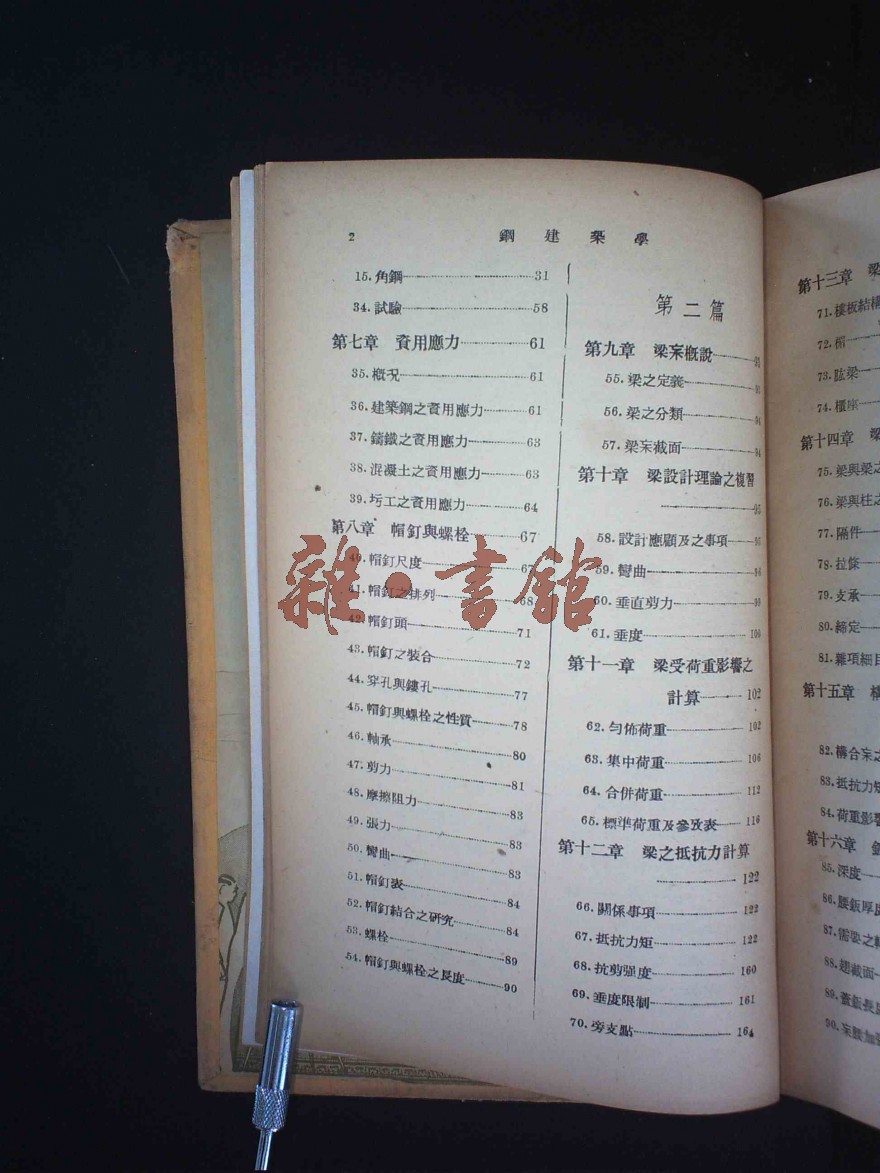 2
鋼建築學
15.角鋼 31
34.試驗 58
第七章 資用應力 61
35.概況 61
36.建築鋼之資用應力 61
37.鑄鐵之資用應力 63
38.混凝土之資用應力 63
39.圬工之資用應力 64
第八章 帽釘與螺栓 67
40.帽釘尺度 67
41.帽釘之排列 68
42.帽釘頭 71
43.帽釘之裝合 72
44.穿孔與鏤孔 77
45.帽釘與螺栓之性質 78
46.軸承 80
47.剪力 81
48.摩擦阻力 83
49.張力 83
50.彎曲 83
51.帽釘表 84
52.帽釘結合之研究 84
53.螺栓 89
54.帽釘與螺栓之長度 90
第二篇
第九章 梁桁概說
55.梁之定義
56.梁之分類 94
57.梁桁截面 94
第十章 梁設計理論之複習
95
58.設計應顧及之事項
59.彎曲
60.垂直剪力
61.垂度 100
第十一章 梁受荷重影響之
計算 102
62.勻佈荷重 102
63.集中荷重 106
64.合併荷重 112
65.標準荷重及參攷表 116
第十二章 梁之抵抗力計算
122
66.關係事項 122
67.抵抗力矩 122
68.抗剪強度 160
69.垂度限制 161
70.旁支點 164
第十三章 梁
71.樓板結構
72.楣
73.肱梁
74.櫃座
第十四章 梁
75.梁與梁之
76.梁與柱之
77.隔件
78.拉條
79.支承
80.締定
81.雜項細目
第十五章
82.構合桁之
83.抵抗力矩
84.荷重影響
第十六章
85.深度
86.腰鈑厚度
87.需要之
88.翅截面
89.蓋鈑長度
90.
雜·書館